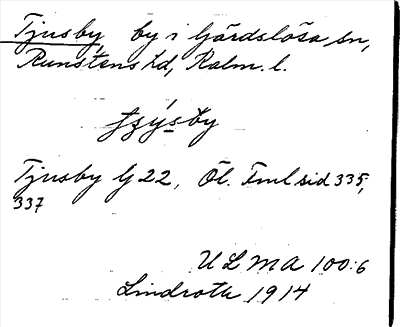 Tjusby by i Gärdslösa sn,
Runstens hd, Kalm. l.
Tjusby G 22, Öl. Fml sid 335,
337
ULMA 100:6
Lindroth 1914